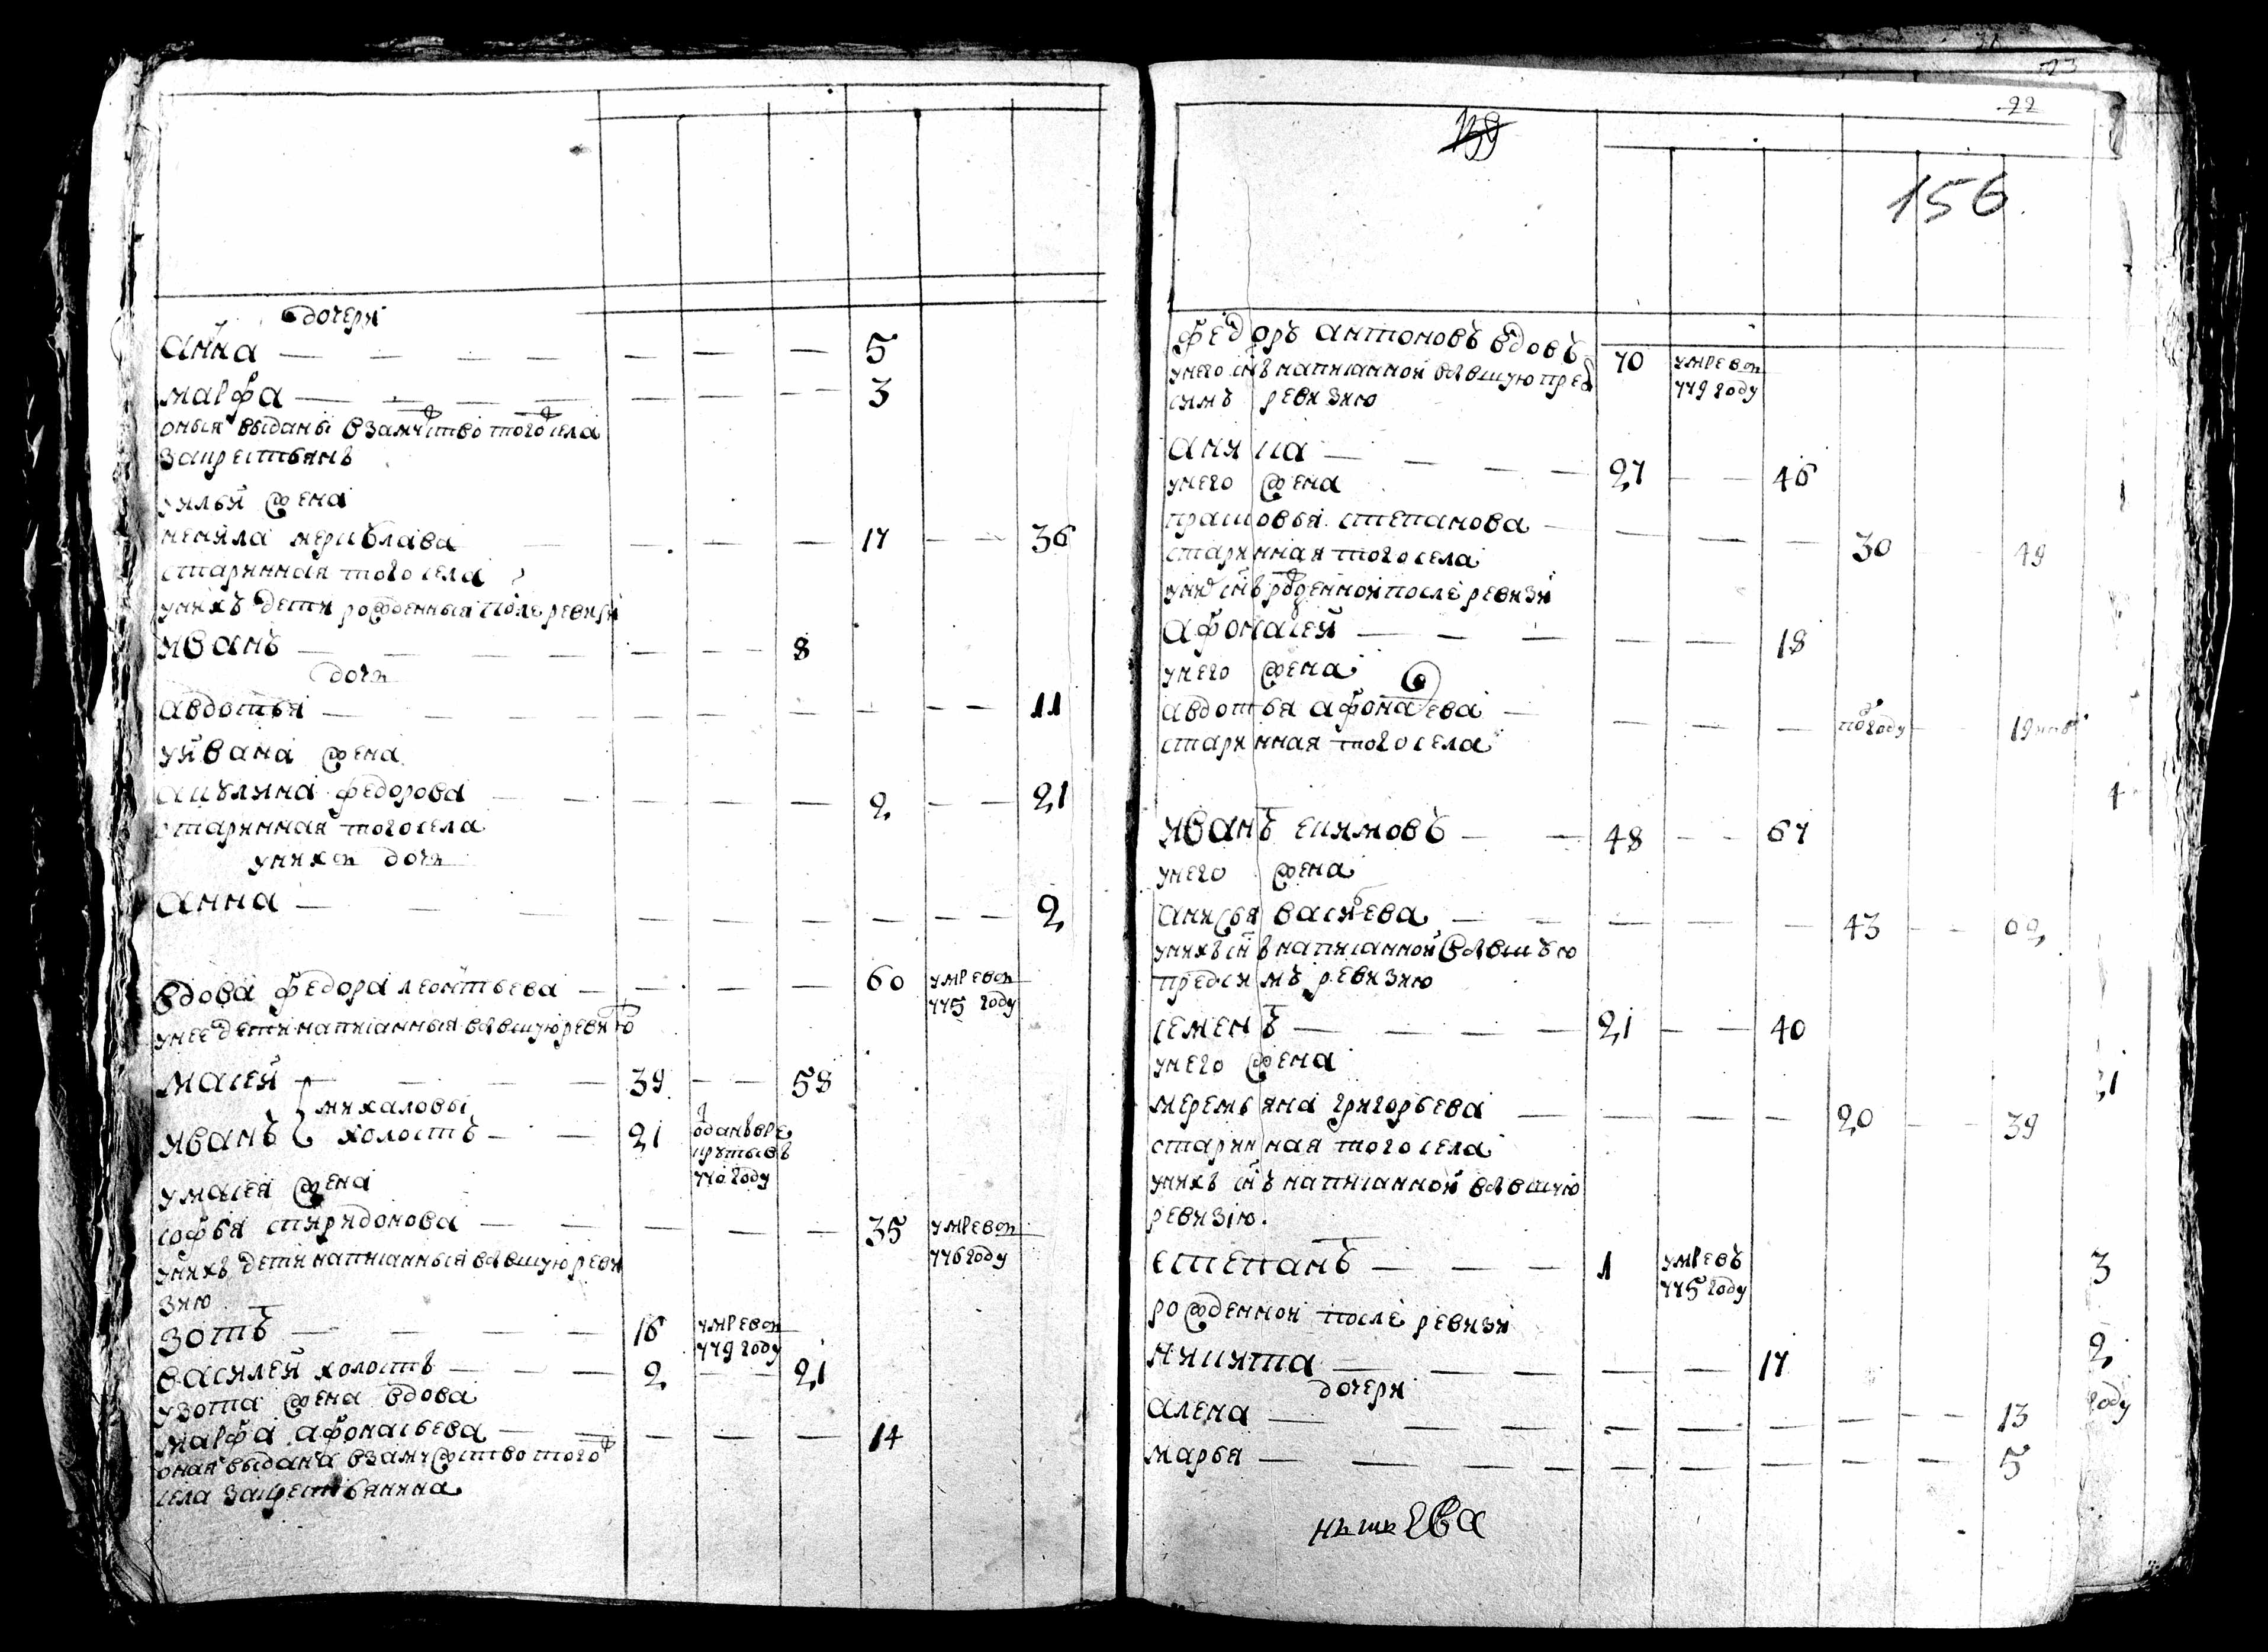 дочери
анна — — — — — — — 5
марфа — — — — — — — 3
оныя выданы взамужство того села
за крестьянъ
уильи жена
ненила нериѣлава — — — — 17 — — 36
старинная того села
унихъ дети рожденныя после ревизи
иванъ — — — — — — — 8
дочь
авдотья — — — — — — — — — — 11
уивана жена
акулина федорова — — — — — 2 — — 21
старинная того села
унихъ дочь
анна — — — — — — — — — 2
вдова федора леонтьева — — — — 60 умре въ
775 году
унее дети написанныя в бывшую ревизию
масей — — — — 39 — — 58
михаловы
иванъ холостъ — — 21 оданъ в ре
круты въ
770 году
умасея жена
софья спиридонова — — — — — 35 умре въ
776 году
унихъ дети написанныя в бывшую реви
зию
зотъ — — — — 16 умре въ
779 году
василей холостъ — — — 2 — — 21
узота жена вдова
марфа афонасьева — — — — — 14
оная выдана взамужство того
села за крестьянина
22
156
федоръ антоновъ вдовъ 70 умре въ
779 году
унего снъ написанной в бывшую пред
симъ ревизию
аника — — — — 27 — — 46
унего жена
прасковья степанова — — — — 30 — 49
старинная того села
уних снъ рожденной после ревизи
афонасей — — — — — 18
унего жена
авдотья афонасева — — — — по году — 19
старинная того села
иванъ екимовъ — — 48 — — 67
унего жена
анисья василева — — — — — 43 — — 62
унихъ снъ написанной в бывшую
предсимъ ревизию
семенъ — — — — 21 — — 40
унего жена
меремьяна григорьева — — — — 20 — — 39
старинная того села
унихъ снъ написанной в бывшую
ревизию.
степанъ — — — 1 умре въ
775 году
рожденной после ревизи
никита — — — — — 17
дочери
алена — — — — — — — — 13
марья — — — — — — — — — 5